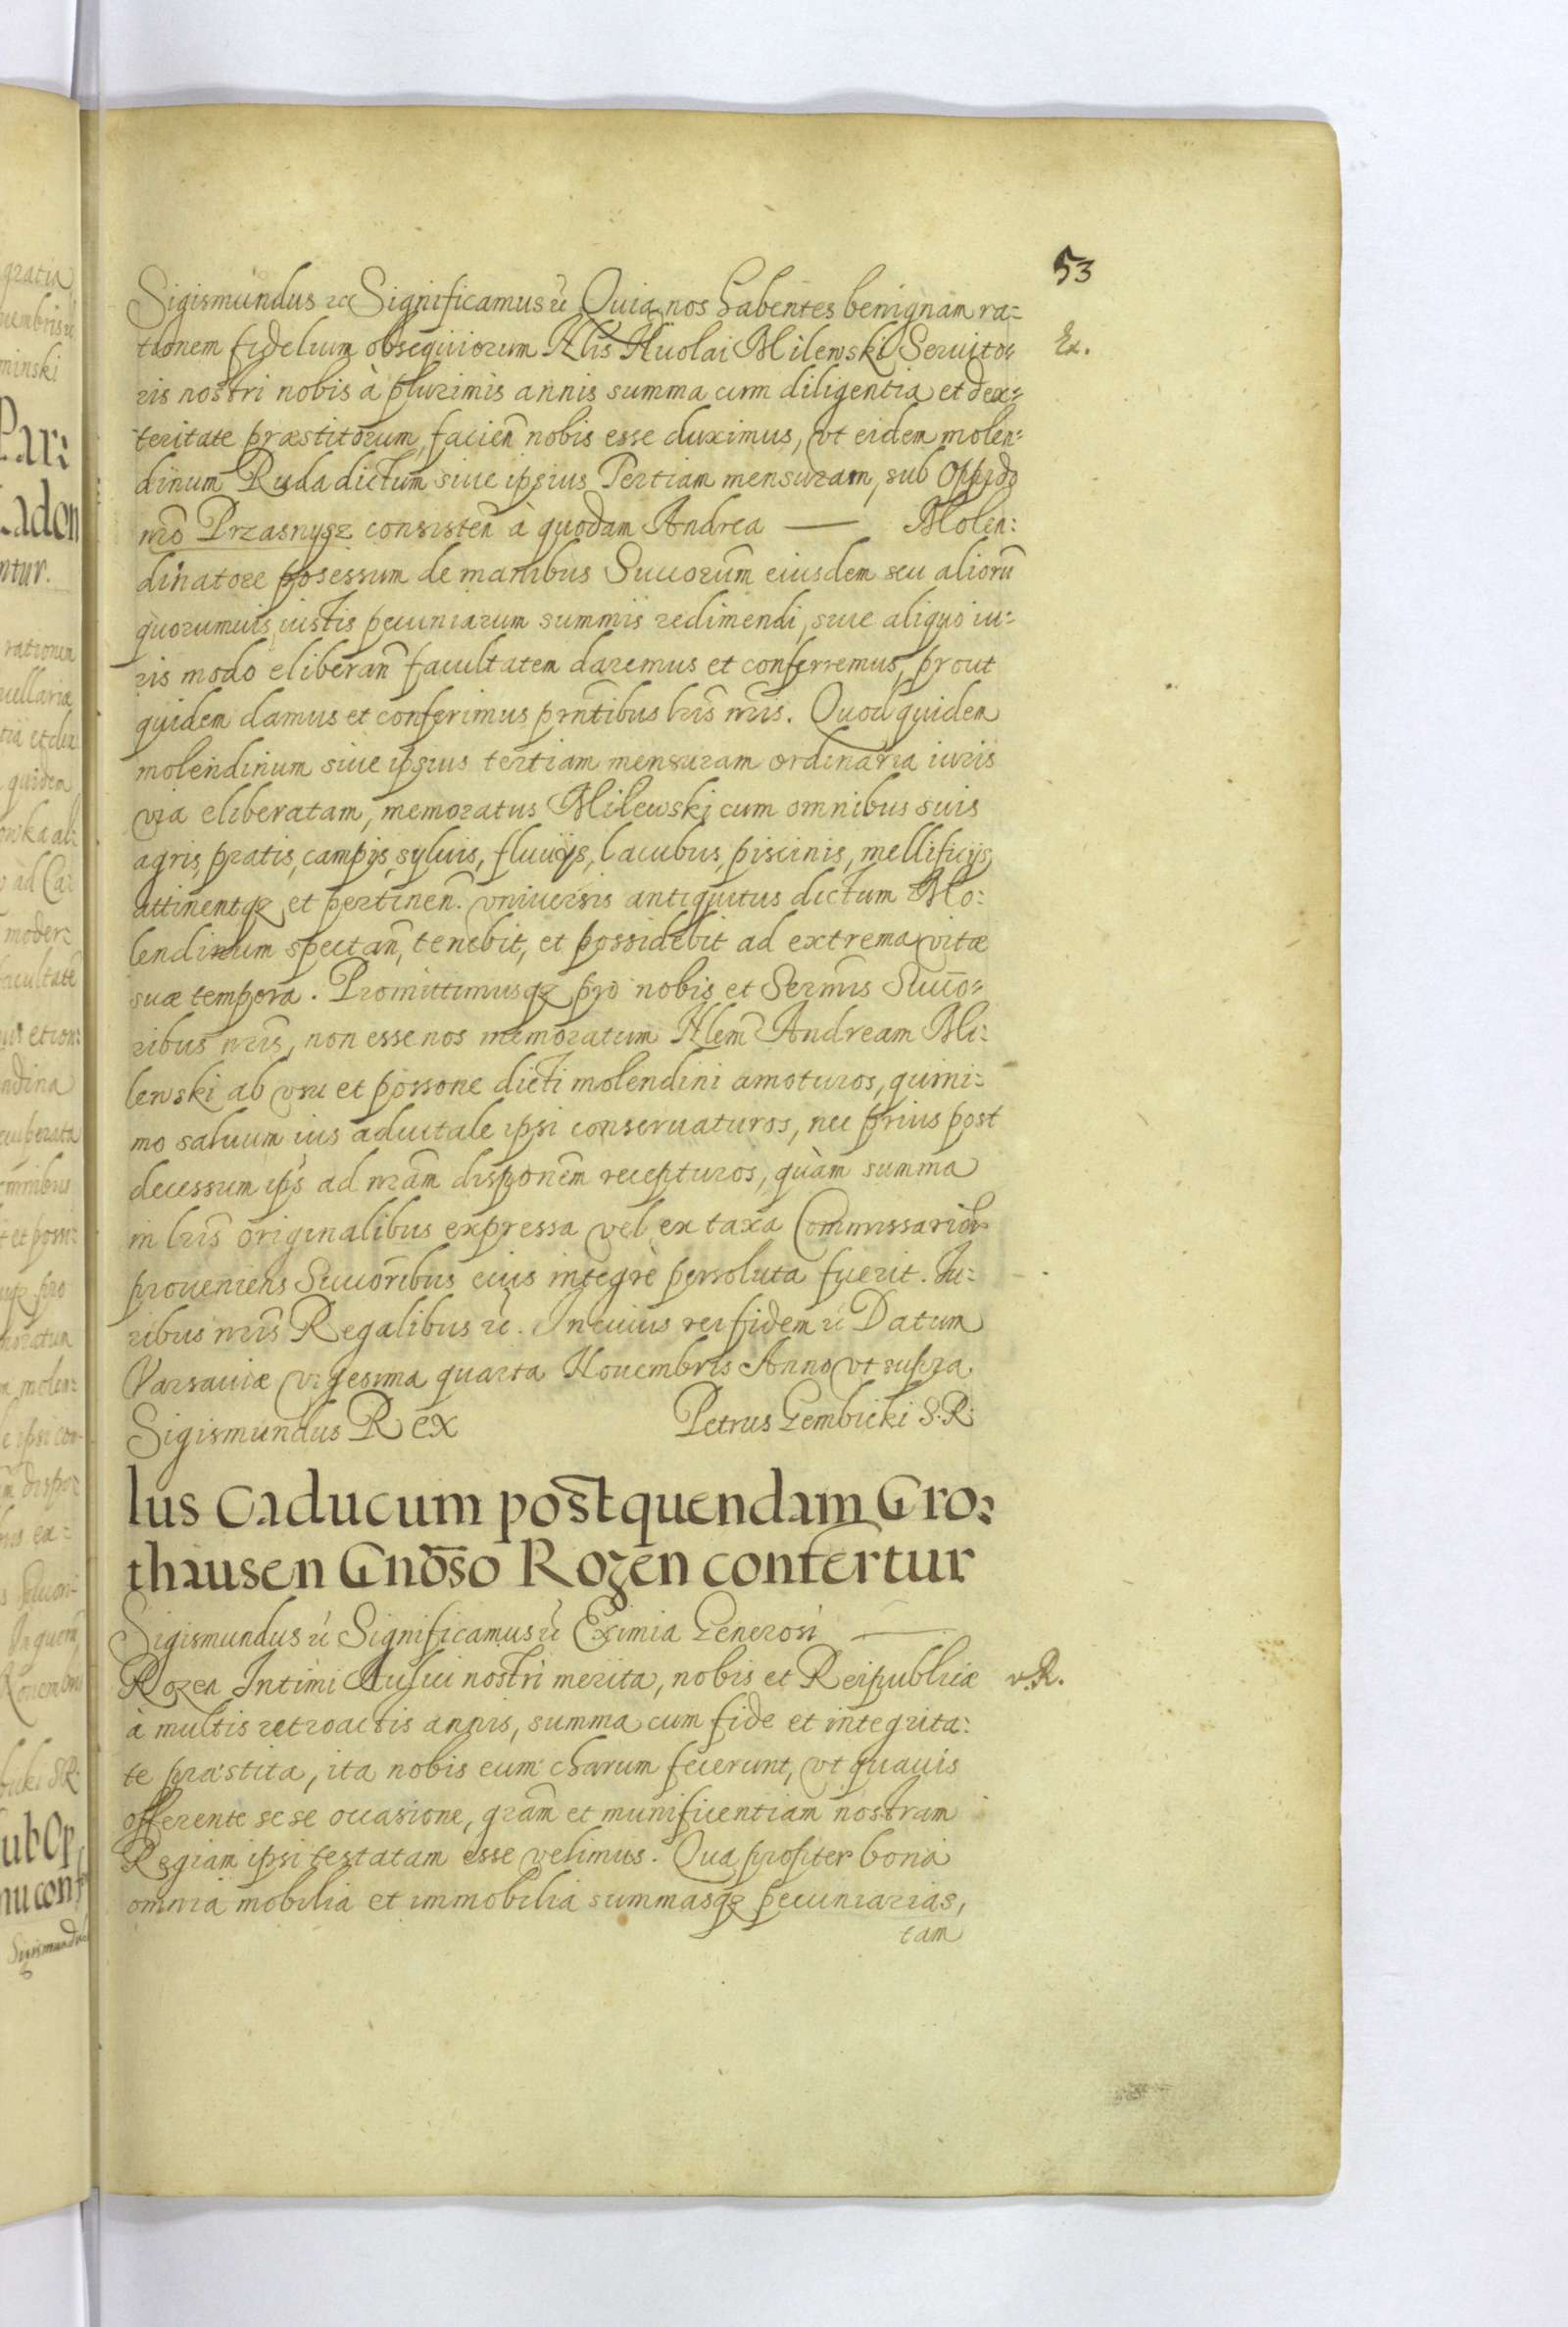 53
Sigismundus etc Significamus etc Quia nos habentes benignam ra=
tionem fidelium obsequiorum Nlis Nicolai Milewski Seruito= Ex.
ris nostri nobis à plurimis annis summa cum diligentia et dex=
teritate præstitorum, facien̄ nobis esse duximus, vt eidem molen=
dinum Ruda dictum siue ipsius Tertiam mensuram, sub Oppido
nr̄o Przasnysz consisten̄ à quodam Andrea — Molen:
dinatore posessum de manibus Succorum eiusdem seu aliorū
quorumuis iustis pecuniarum summis redimendi, siue aliquo iu:
ris modo eliberan̄ facultatem daremus et conferremus, prout
quidem damus et conferimus prn̄tibus lr̄is nr̄is. Quod quidem
molendinum siue ipsius tertiam mensuram ordinaria iuris
via eliberatam, memoratus Milewski cum omnibus suis
agris, pratis, campis, syluis, fluuijs, lacubus, piscinis, mellificijs,
attinentqz et pertinen̄. vniuersis antiquitus dictum Mo:
lendinum spectan̄, tenebit, et possidebit ad extrema vitæ
suæ tempora. Promittimusqz pro nobis et Serm̄is Succo=
ribus nr̄is, non esse nos memoratum Nlem̄ Andream Mi:
lewski ab vsu et possone dicti molendini amoturos, quini:
mo saluum ius aduitale ipsi conseruaturos, nec prius post
decessum ips̄ ad nr̄am disponem̄ recepturos, quàm summa
in lr̄is originalibus expressa vel ex taxa Commissarior
proueniens Succoribus eius integrè persoluta fuerit. Iu:
ribus nr̄is Regalibus etc. In cuius rei fidem etc Datum
Varsauiæ vigesima quarta Nouembris Anno vt supra
Sigismundus Rex Petrus Gembicki S:R:
Ius Caducum post quendam Gro:
thausen Gnōso Rozen confertur
Sigismundus etc Significamus etc Eximia Generosi —
Rozen Intimi Aulici nostri merita, nobis et Reipublicæ v.R.
à multis retroactis annis, summa cum fide et integrita:
te præstita, ita nobis eum charum fecerunt, vt quauis
offerente sese occasione, gr̄am et munificentiam nostram
Regiam ipsi testatam esse velimus. Qua propter bona
omnia mobilia et immobilia summasqz pecuniarias,
tam